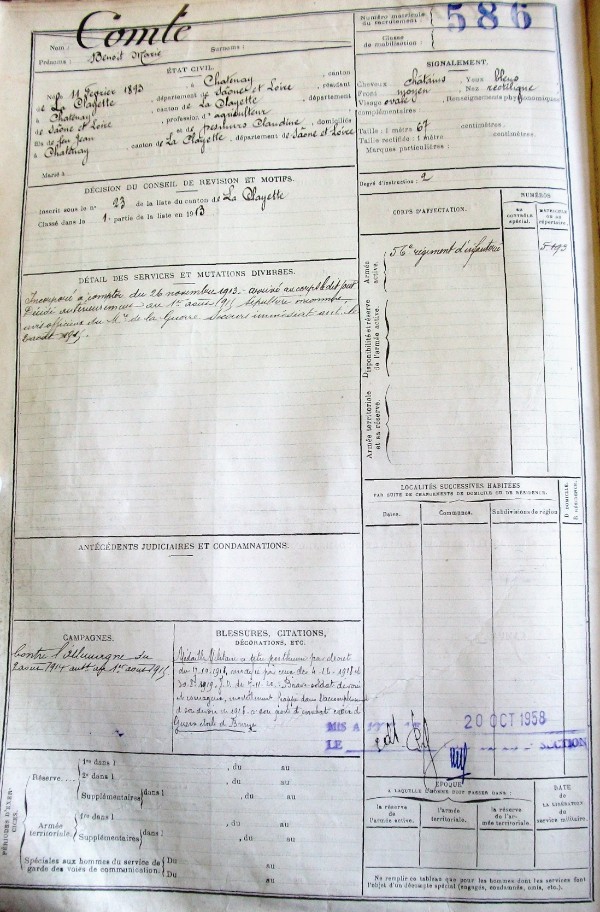 Nom : Comte
Prénoms : Benoit Marie Surnoms :
Numéro matricule du recrutement : 586
Classe de mobilisation :
ÉTAT CIVIL.
Né le 11 février 1893, à Chatenay, canton
de La Clayette, département de Saône et Loire, résidant
à Chatenay, canton de La Clayette, département
de Saône et Loire, profession d' agriculteur
fils de feu Jean et de Claudine, domiciliés
à Chatenay, canton de La Clayette, département de Saône et Loire
Marié à
SIGNALEMENT.
Cheveux châtains Yeux bleus
Front moyen Nez rectiligne
Visage ovale Renseignements physionomiques
complémentaires :
Taille : 1 mètre 67 centimètres.
Taille rectifiée : 1 mètre centimètres.
Marques particulières :
Degré d'instruction : 2
DÉCISION DU CONSEIL DE RÉVISION ET MOTIFS.
Inscrit sous le n° 23 de la liste du canton de La Clayette
Classé dans la 1e partie de la liste en 1913
CORPS D'AFFECTATION.
NUMÉROS
au contrôle spécial.
matricule ou au répertoire.
Armée active.
56e régiment d'infanterie
Disponibilité et réserve de l'armée active.
Armée territoriale et sa réserve.
DÉTAIL DES SERVICES ET MUTATIONS DIVERSES.
Incorporé à compter du 26 novembre 1913 - arrivé au corps le dit jour
Décédé antérieurement au 1er août 1915
de la Guerre. Secours
août 1915
LOCALITÉS SUCCESSIVES HABITÉES
PAR SUITE DE CHANGEMENTS DE DOMICILE OU DE RÉSIDENCE.
Dates. Communes. Subdivisions de région
D. DOMICILE. R. RÉSIDENCE.
ANTÉCÉDENTS JUDICIAIRES ET CONDAMNATIONS.
CAMPAGNES.
Contre l'Allemagne du
2 août 1914 au 1er août 1915
BLESSURES, CITATIONS,
DÉCORATIONS, ETC.
Médaille Militaire à titre posthume par décret
Brave soldat dévoué
et courageux, mortellement frappé dans l'accomplissement
de son devoir
Guerre étoile de Bronze
MIS A
LE
20 OCT 1958
SECTION
ÉPOQUE
A LAQUELLE L'HOMME DOIT PASSER DANS :
la réserve de l'armée active.
l'armée territoriale.
la réserve de l'armée territoriale.
DATE de LA LIBÉRATION du service militaire.
PÉRIODES D'EXERCICES.
Réserve....
1re dans l , du au
2e dans l , du au
Supplémentaires dans l , du au
Armée territoriale.
1re dans l , du au
Supplémentaires dans l , du au
Spéciales aux hommes du service de
garde des voies de communication.
Du au
Du au
Ne remplir ce tableau que pour les hommes dont les services font
l'objet d'un décompte spécial (engagés, condamnés, omis, etc.).